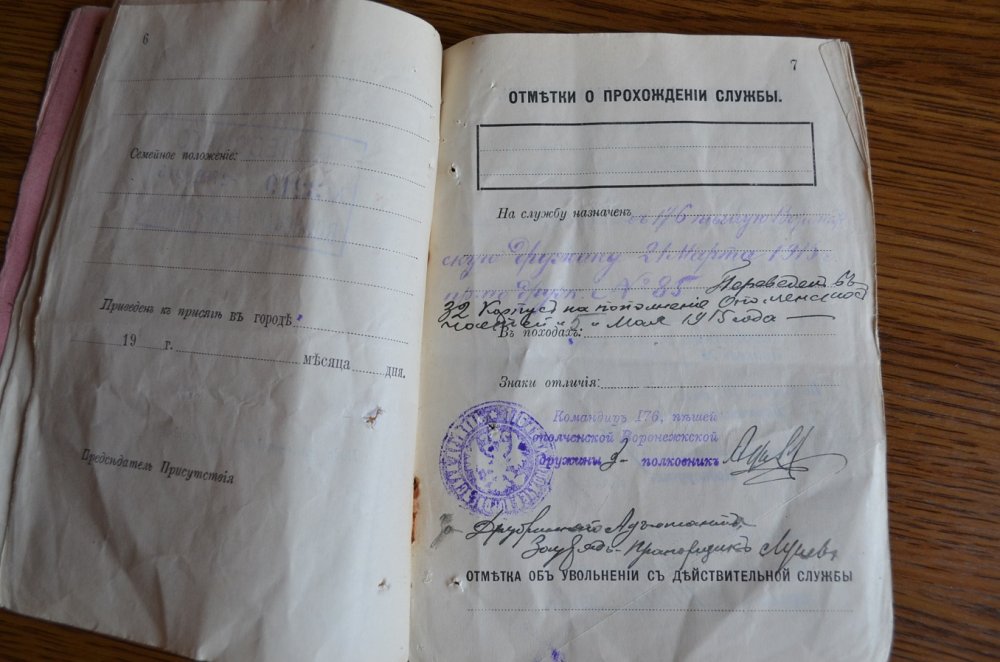 6
Семейное положеніе:
Приведенъ къ присягѣ въ городѣ
19 г. мѣсяца дня.
Предсѣдатель Присутствія
7
ОТМѢТКИ О ПРОХОЖДЕНІИ СЛУЖБЫ.
На службу назначенъ въ 176 пѣшую Воронеж
скую дружину 21 Марта 1915
№ 85 Переведенъ въ
32 Корпусъ на пополненіе Ополченскихъ
частей " 5 " Мая 1915 года
Въ походахъ:
Знаки отличія:
Командиръ 176, пѣшей
ополченской Воронежской
дружины полковникъ
Адъютантъ
Зауряд-Прапорщикъ
ОТМѢТКА ОБЪ УВОЛЬНЕНІИ СЪ ДѢЙСТВИТЕЛЬНОЙ СЛУЖБЫ